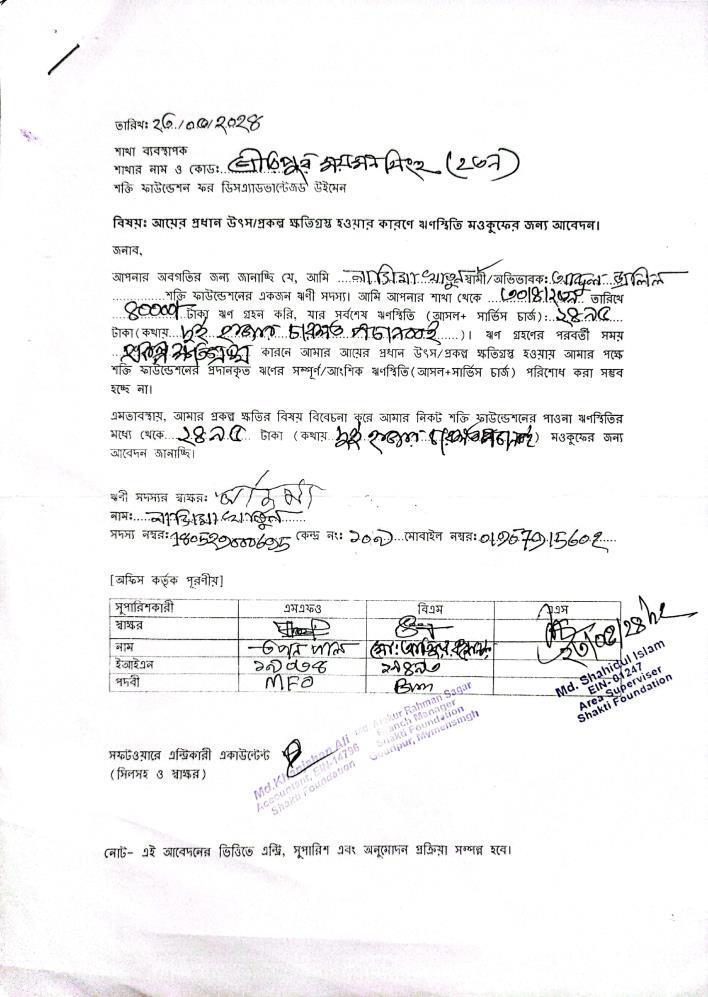 তারিখ: ২৩/০৫/২০২৪
শাখা ব্যবস্থাপক
শাখার নাম ও কোড:
শক্তি ফাউন্ডেশন ফর ডিসএ্যাডভান্টেজড উইমেন
বিষয়: আয়ের প্রধান উৎস/প্রকল্প ক্ষতিগ্রস্থ হওয়ার কারণে ঋণস্থিতি মওকুফের জন্য আবেদন।
জনাব,
আপনার অবগতির জন্য জানাচ্ছি যে, আমি খাতুন স্বামী/অভিভাবক: আব্দুল জলিল
শক্তি ফাউন্ডেশনের একজন ঋণী সদস্য। আমি আপনার শাখা থেকে তারিখে
40000 টাকা ঋণ গ্রহন করি, যার সর্বশেষ ঋণস্থিতি (আসল+ সার্ভিস চার্জ): ২৪৯৫
টাকা (কথায় দুই হাজার চারশত পচানব্বই)। ঋণ গ্রহণের পরবর্তী সময়
কারনে আমার আয়ের প্রধান উৎস/প্রকল্প ক্ষতিগ্রস্থ হওয়ায় আমার পক্ষে
শক্তি ফাউন্ডেশনের প্রদানকৃত ঋণের সম্পূর্ণ/আংশিক ঋণস্থিতি(আসল+সার্ভিস চার্জ) পরিশোধ করা সম্ভব
হচ্ছে না।
এমতাবস্থায়, আমার প্রকল্প ক্ষতির বিষয় বিবেচনা করে আমার নিকট শক্তি ফাউন্ডেশনের পাওনা ঋণস্থিতির
মধ্যে থেকে ২৪৯৫ টাকা (কথায় দুই হাজার চারশত পচানব্বই) মওকুফের জন্য
আবেদন জানাচ্ছি।
ঋণী সদস্যের স্বাক্ষর:
নাম: খাতুন
সদস্য নম্বর: কেন্দ্র নং: ১০৯ মোবাইল নম্বর:
[অফিস কর্তৃক পূরণীয়]
সুপারিশকারী এমএফও বিএম এএস
স্বাক্ষর
নাম তপন পাল
ইআইএন
পদবী MFO Bm
Md. Shahidul Islam
EIN- 01247
Area Superviser
Shakti Foundation
Md. Ashikur Rahman Sagar
Branch Manager
Shakti Foundation
Gouripur, Mymensingh
সফটওয়ারে এন্ট্রিকারী একাউন্টেন্ট
(সিলসহ ও স্বাক্ষর)
Accountant, EIN-14796
Shakti Foundation
নোট- এই আবেদনের ভিত্তিতে এন্ট্রি, সুপারিশ এবং অনুমোদন প্রক্রিয়া সম্পন্ন হবে।